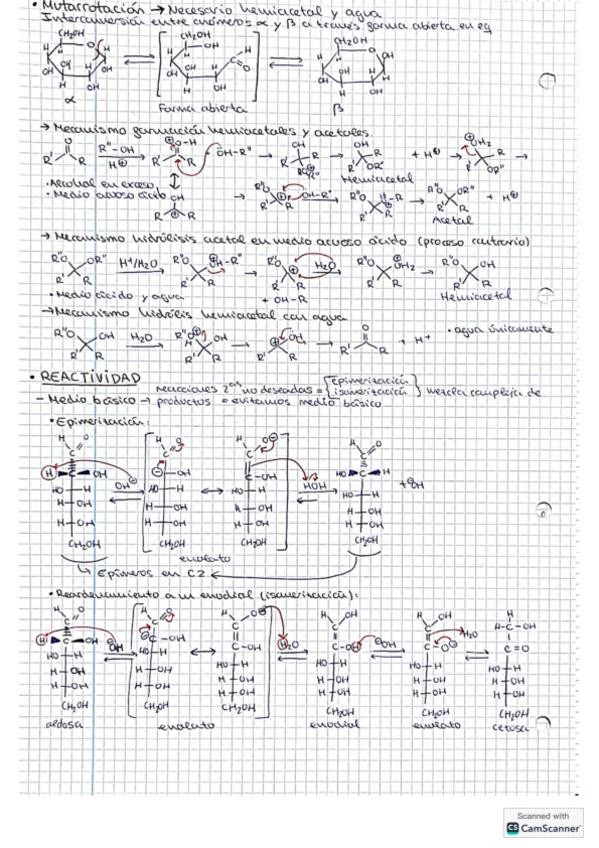 • Mutarrotación → Necesario hemiacetal y agua
Interconversión entre anómeros α y β a través forma abierta en eq
CH₂OH CH₂OH CH₂OH
α Forma abierta β
→ Mecanismo formación hemiacetales y acetales.
R''-OH
H⊕
Hemiacetal
• Alcohol en exceso
• Medio acuoso ácido
Acetal
→ Mecanismo hidrólisis acetal en medio acuoso ácido (proceso contrario)
H⁺/H₂O
H₂O
• Medio ácido y agua
+ OH-R
Hemiacetal
→ Mecanismo hidrólis hemiacetal con agua
H₂O
+ H⁺
• agua únicamente
• REACTIVIDAD
reacciones 2ᵃʳⁱᵃˢ no deseadas = {epimerización
isomerización} mezcla compleja de
- Medio básico → productos = evitamos medio básico
• Epimerización:
OH⊖
HOH
+ ⊖OH
CH₂OH CH₂OH CH₂OH CH₂OH
enolato
↳ Epímeros en C2
• Reordenamiento a un enodiol (isomerización):
⊖OH
H₂O
⊖OH
H₂O
CH₂OH CH₂OH CH₂OH CH₂OH CH₂OH CH₂OH
aldosa enolato enodiol enolato cetosa
Scanned with
CS CamScanner